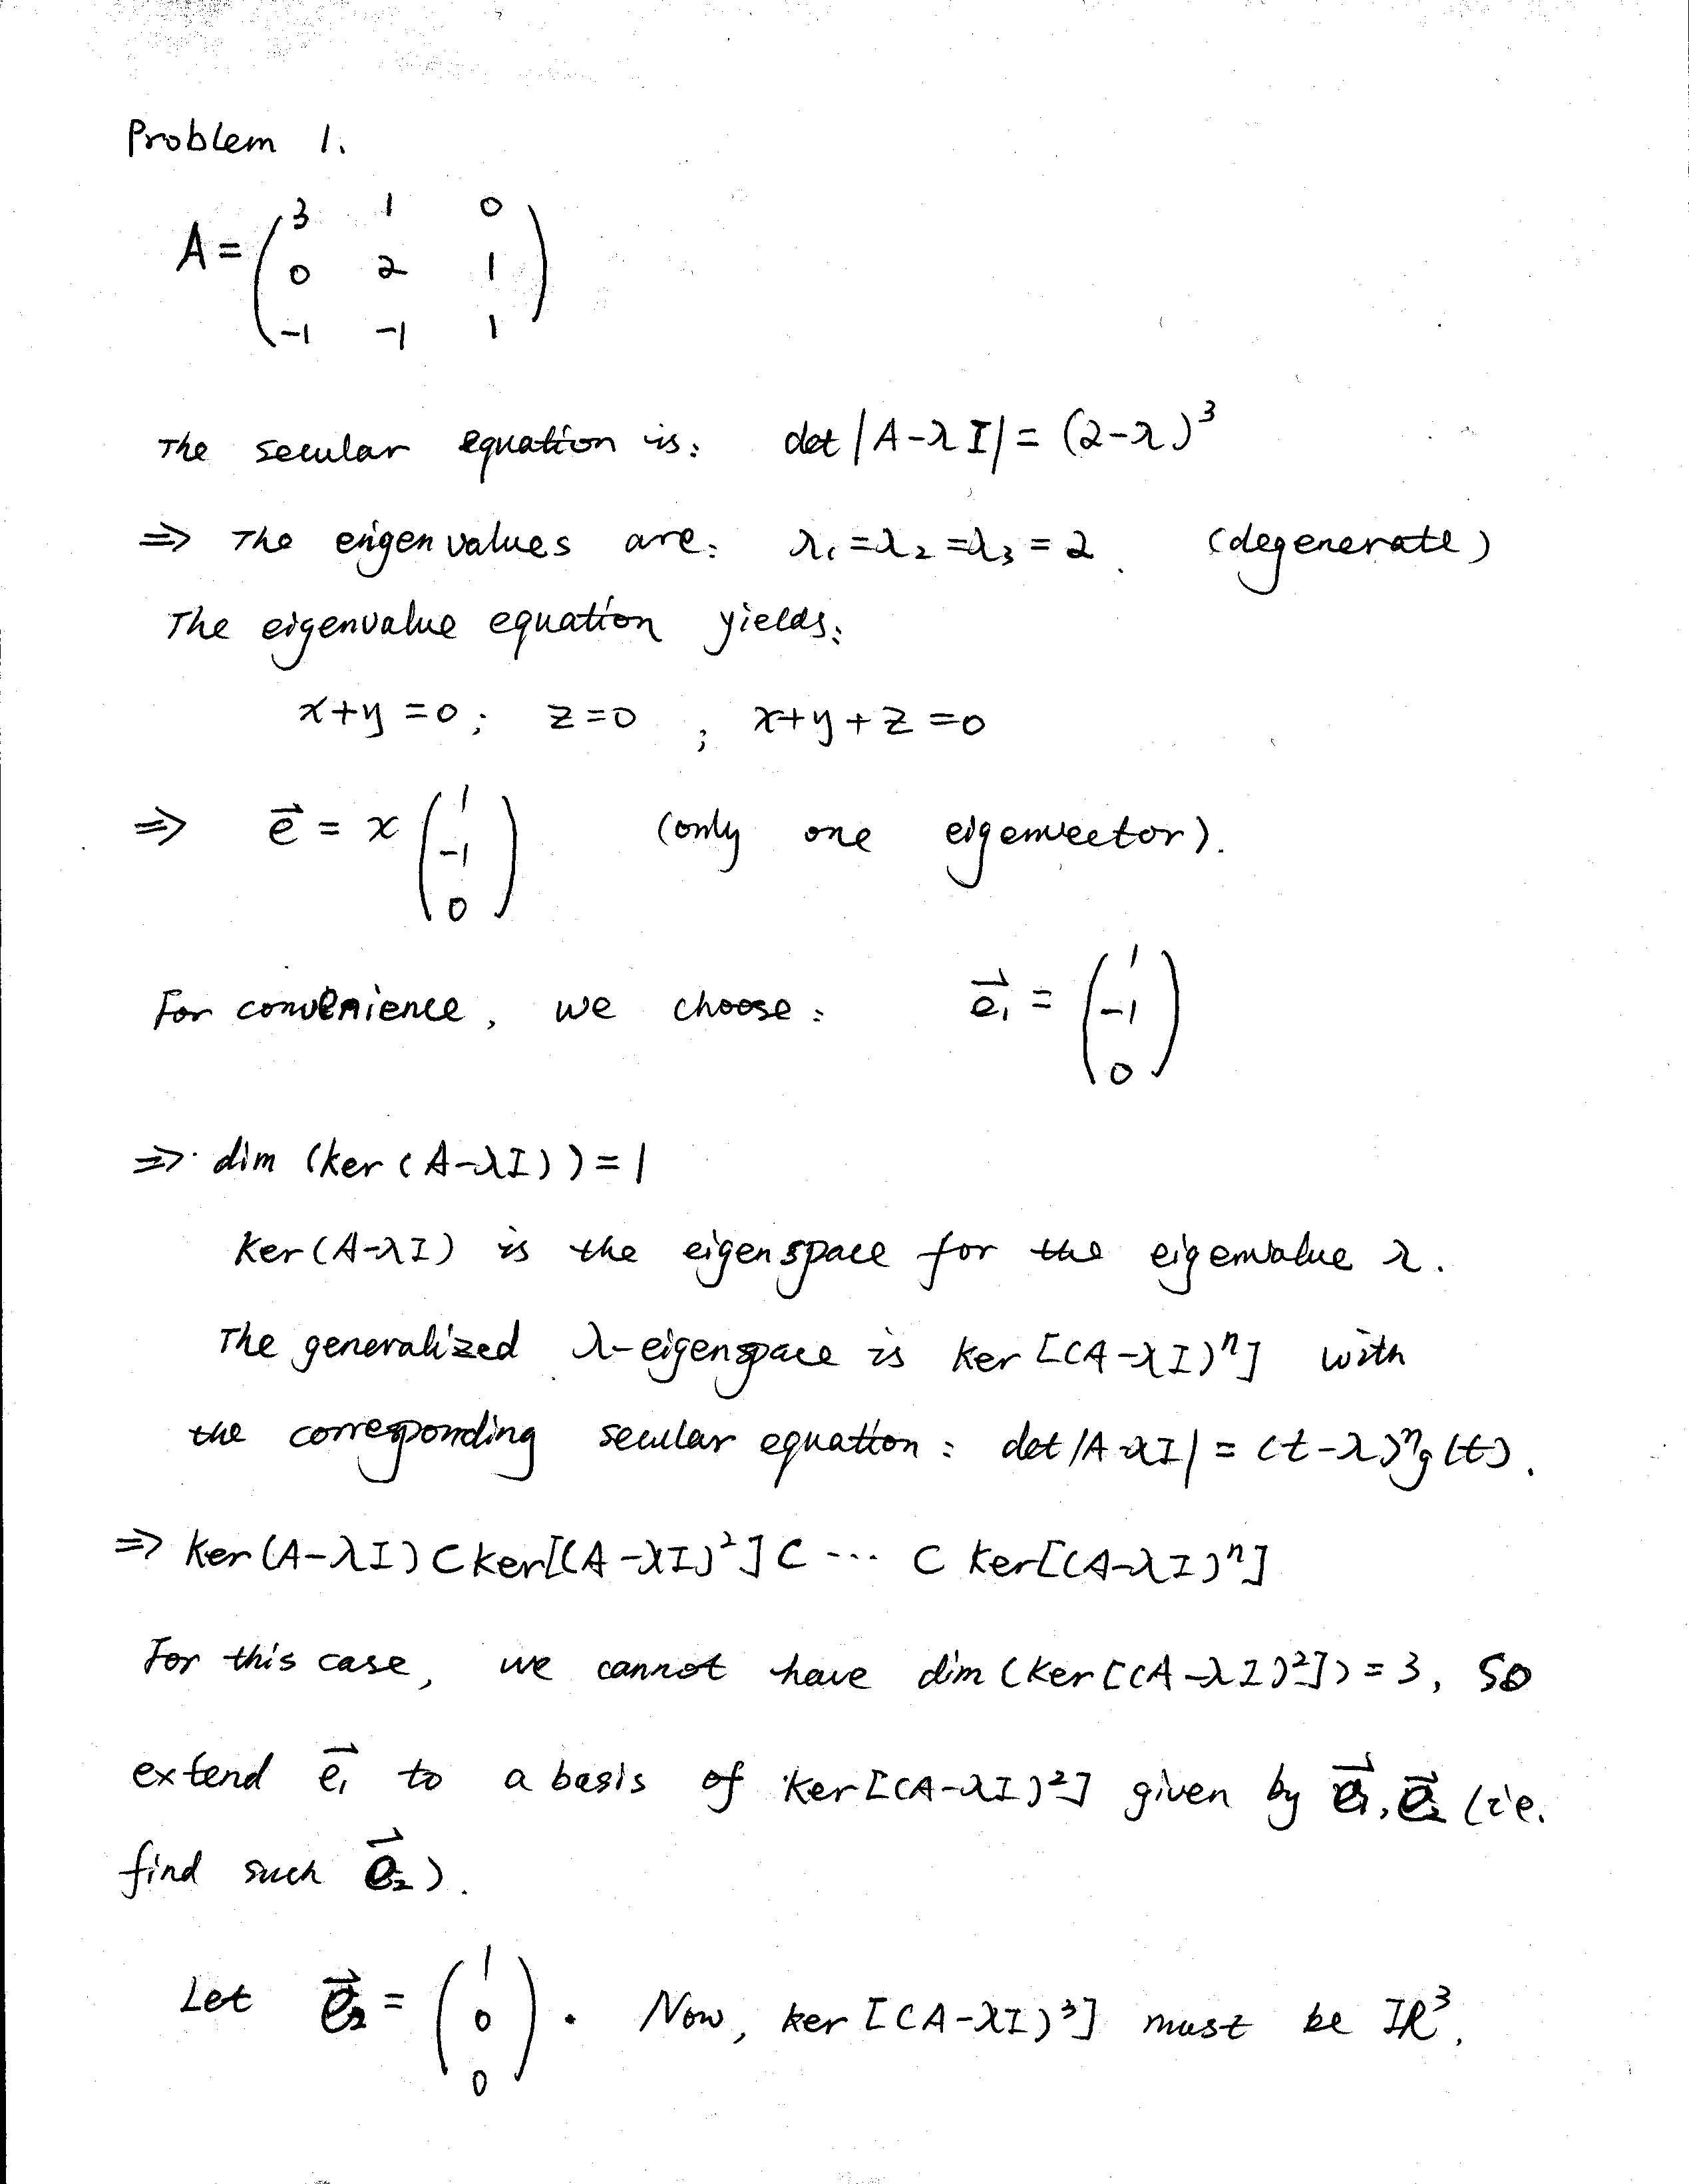 Problem 1.
A = ( 3 1 0
0 2 1
-1 -1 1 )
The secular equation is: det |A-λI| = (2-λ)³
⇒ The eigenvalues are: λ₁=λ₂=λ₃=2. (degenerate)
The eigenvalue equation yields:
x+y=0; z=0 ; x+y+z=0
⇒ e⃗ = x ( 1 -1 0 ) (only one eigenvector).
For convenience, we choose: e⃗₁ = ( 1 -1 0 )
⇒ dim (ker (A-λI)) = 1
Ker(A-λI) is the eigenspace for the eigenvalue λ.
The generalized λ-eigenspace is ker [(A-λI)ⁿ] with
the corresponding secular equation: det |A-λI| = (t-λ)ⁿg(t).
⇒ ker(A-λI) ⊂ ker[(A-λI)²] ⊂ ... ⊂ ker[(A-λI)ⁿ]
For this case, we cannot have dim (ker [(A-λI)²]) = 3, so
extend e⃗₁ to a basis of ker[(A-λI)²] given by e⃗₁, e⃗₂ (i.e.
find such e⃗₂).
Let e⃗₂ = ( 1 0 0 ). Now, ker [(A-λI)³] must be IR³.